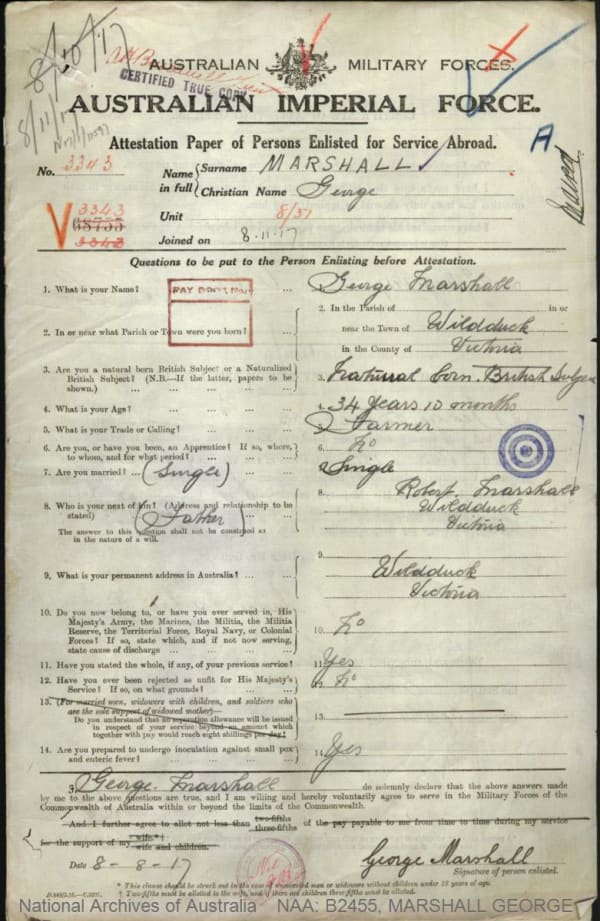 8/10/17
8/11/17
CERTIFIED TRUE COPY
AUSTRALIAN MILITARY FORCES.
AUSTRALIAN IMPERIAL FORCE.
A
Attestation Paper of Persons Enlisted for Service Abroad.
No. 3343
Name in full { Surname MARSHALL
Christian Name George
V 3343
68755
3343
Unit 8/37
Joined on 8.11.17
Questions to be put to the Person Enlisting before Attestation.
1. What is your Name? ... George Marshall
PAY BOOK No.
2. In or near what Parish or Town were you born? ...
2. In the Parish of in or
near the Town of Wildduck
in the County of Victoria
3. Are you a natural born British Subject or a Naturalized
British Subject? (N.B.—If the latter, papers to be
shown.) ... 3. Natural born British Subject
4. What is your Age? ... 4. 34 years 10 months
5. What is your Trade or Calling? ... 5. Farmer
6. Are you, or have you been, an Apprentice? If so, where,
to whom, and for what period? ... 6. No
7. Are you married? ... (Single) 7. Single
8. Who is your next of kin? (Address and relationship to be
stated) (Father)
8. Robert Marshall
Wildduck
Victoria
The answer to this question shall not be construed as
in the nature of a will.
9. What is your permanent address in Australia? ...
9. Wildduck
Victoria
10. Do you now belong to, or have you ever served in, His
Majesty's Army, the Marines, the Militia, the Militia
Reserve, the Territorial Force, Royal Navy, or Colonial
Forces? If so, state which, and if not now serving,
state cause of discharge ... 10. No
11. Have you stated the whole, if any, of your previous service? 11 Yes
12. Have you ever been rejected as unfit for His Majesty's
Service? If so, on what grounds? ... 12. No
13. (For married men, widowers with children, and soldiers who
are the sole support of widowed mother)—
Do you understand that no separation allowance will be issued
in respect of your service beyond an amount which
together with pay would reach eight shillings per day?
13.
14. Are you prepared to undergo inoculation against small pox
and enteric fever? ... 14. Yes
3 George Marshall do solemnly declare that the above answers made
by me to the above questions are true, and I am willing and hereby voluntarily agree to serve in the Military Forces of the
Commonwealth of Australia within or beyond the limits of the Commonwealth.
And I further agree to allot not less than two-fifths three-fifths of the pay payable to me from time to time during my service
for the support of my wife* wife and children.
Date 8-8-17
George Marshall
Signature of person enlisted.
* This clause should be struck out in the case of unmarried men or widowers without children under 18 years of age.
† Two-fifths must be allotted to the wife, and if there are children three-fifths must be allotted.
National Archives of Australia NAA: B2455, MARSHALL GEORGE